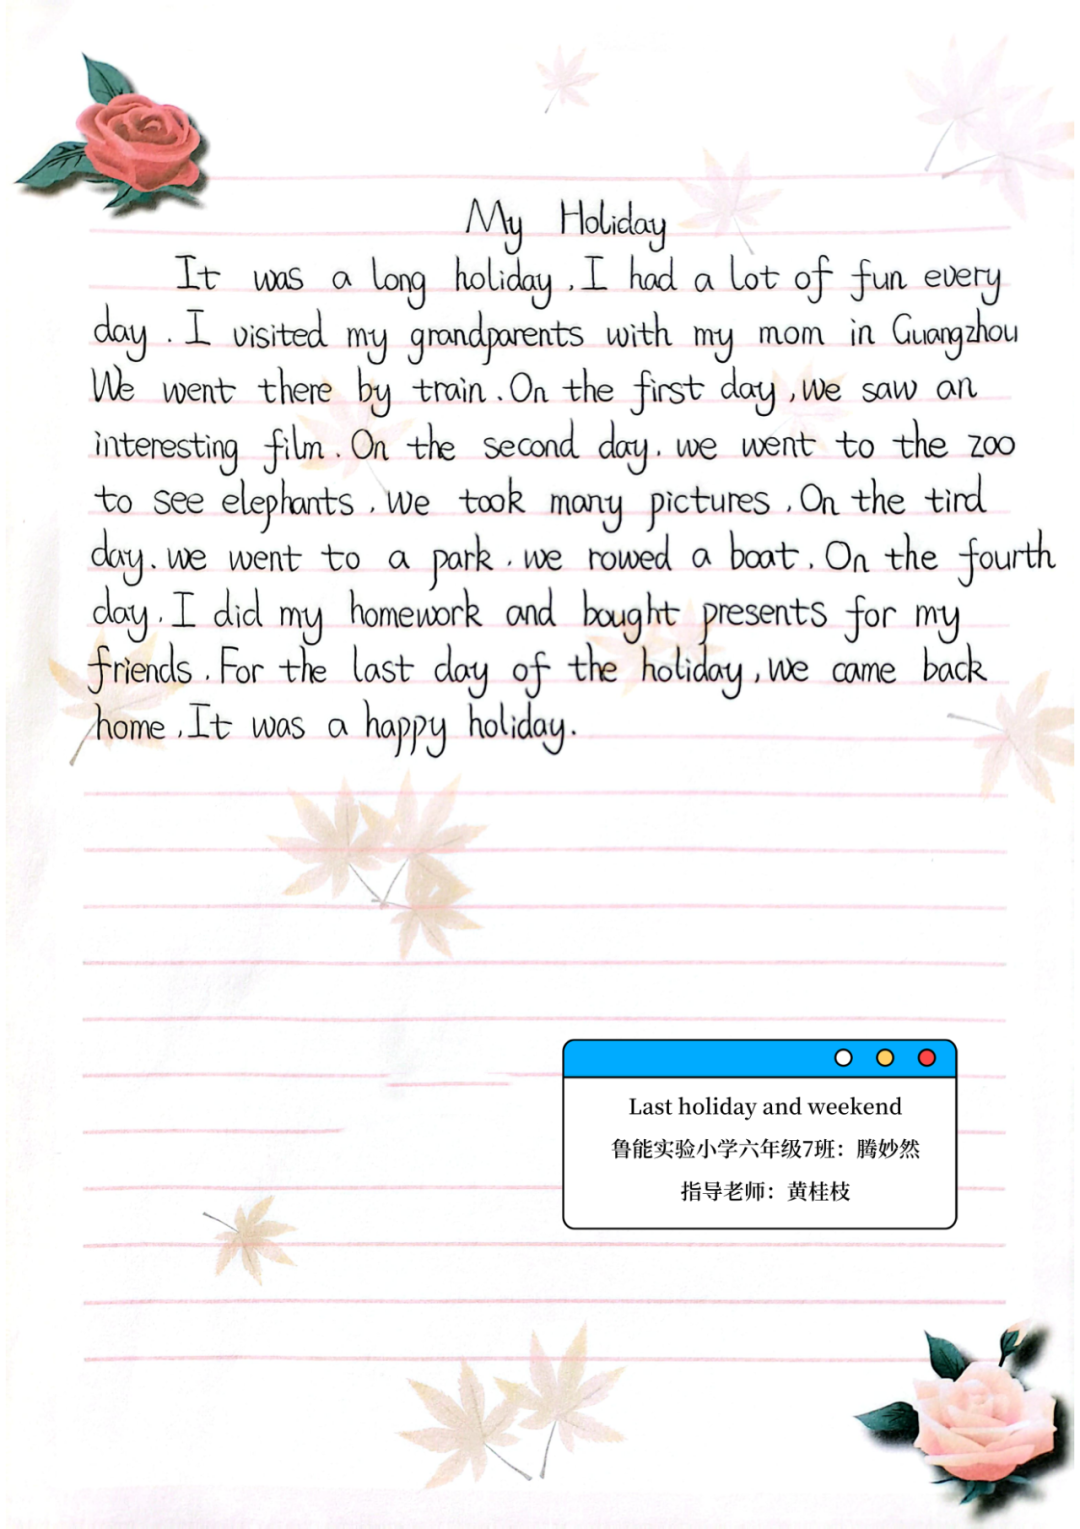 My Holiday
It was a long holiday. I had a lot of fun every
day. I visited my grandparents with my mom in Guangzhou
We went there by train. On the first day, we saw an
interesting film. On the second day, we went to the zoo
to see elephants. We took many pictures. On the tird
day. we went to a park. we rowed a boat. On the fourth
day, I did my homework and bought presents for my
friends. For the last day of the holiday, we came back
home. It was a happy holiday.
Last holiday and weekend
鲁能实验小学六年级7班：腾妙然
指导老师：黄桂枝